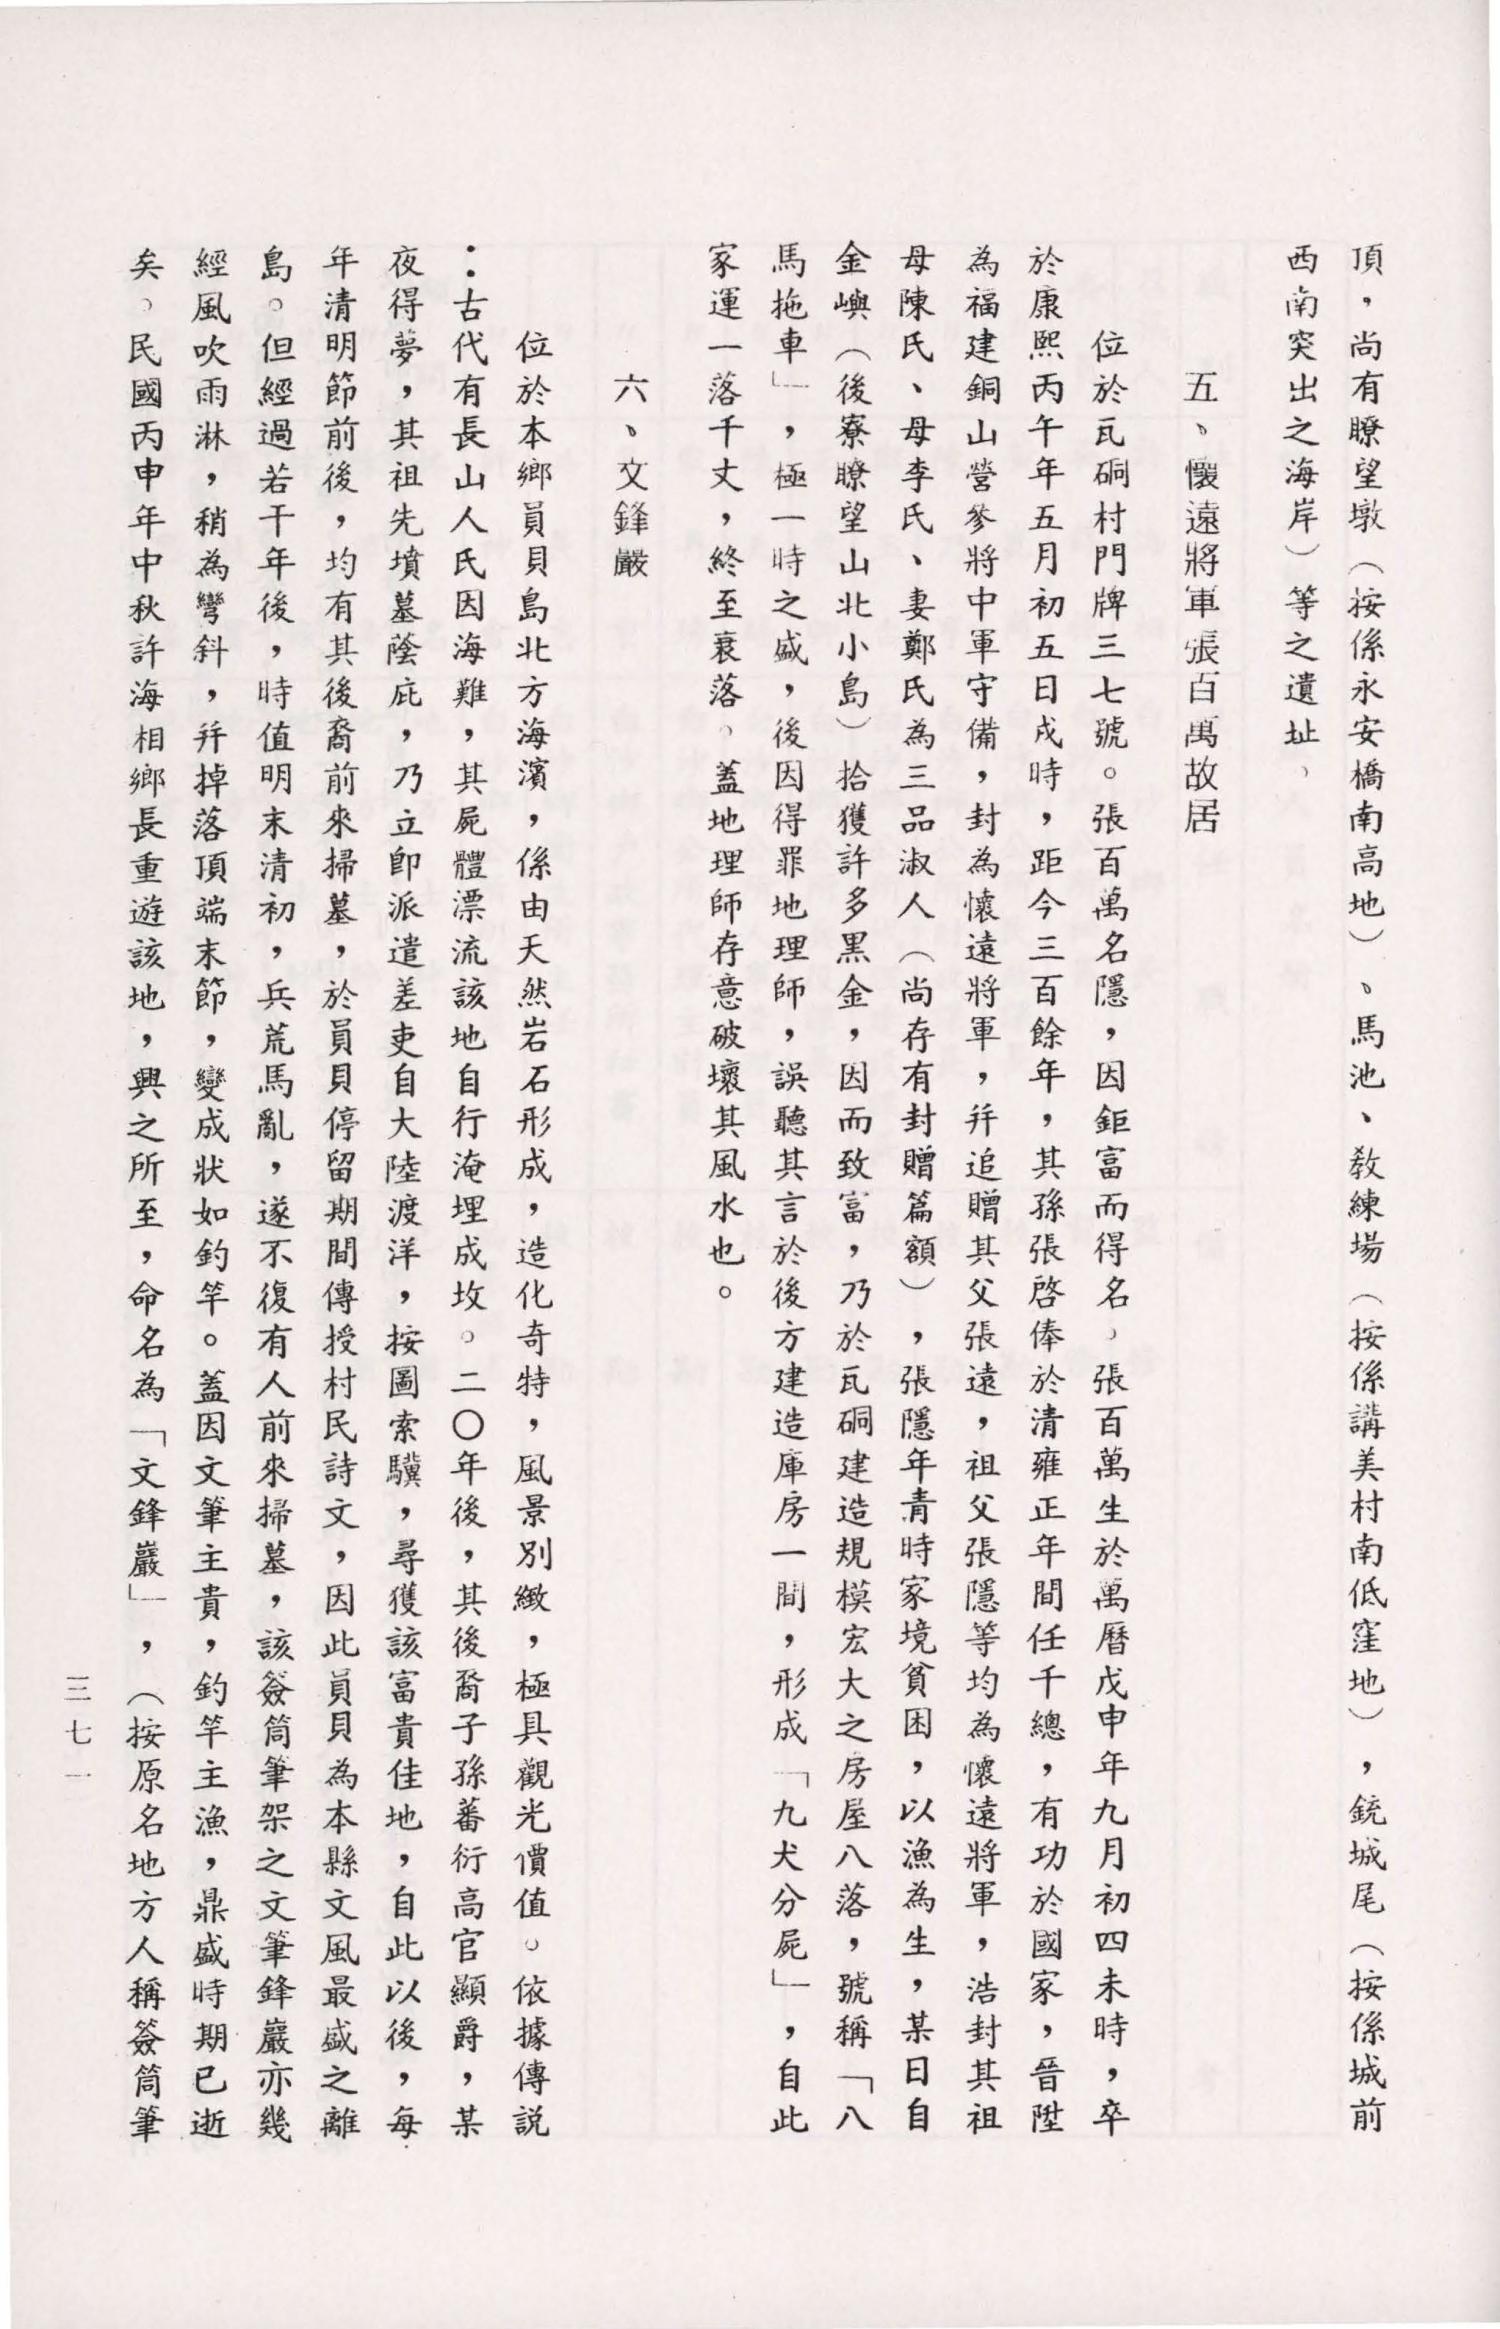 頂，尚有瞭望墩（按係永安橋南高地）、馬池、教練場（按係講美村南低窪地），銃城尾（按係城前
西南突出之海岸）等之遺址。
五、懷遠將軍張百萬故居
位於瓦硐村門牌三七號。張百萬名隱，因鉅富而得名。張百萬生於萬曆戊申年九月初四未時，卒
於康熙丙午年五月初五日戍時，距今三百餘年，其孫張啓俸於清雍正年間任千總，有功於國家，晉陞
為福建銅山營參將中軍守備，封為懷遠將軍，并追贈其父張遠，祖父張隱等均為懷遠將軍，浩封其祖
母陳氏、母李氏、妻鄭氏為三品淑人（尚存有封贈篇額），張隱年青時家境貧困，以漁為生，某日自
金嶼（後寮瞭望山北小島）拾獲許多黑金，因而致富，乃於瓦硐建造規模宏大之房屋八落，號稱「八
馬拖車」，極一時之盛，後因得罪地理師，誤聽其言於後方建造庫房一間，形成「九犬分屍」，自此
家運一落千丈，終至衰落。蓋地理師存意破壞其風水也。
六、文鋒巖
位於本鄉員貝島北方海濱，係由天然岩石形成，造化奇特，風景別緻，極具觀光價值。依據傳說
：古代有長山人氏因海難，其屍體漂流該地自行淹埋成坟。二〇年後，其後裔子孫蕃衍高官顯爵，某
夜得夢，其祖先墳墓蔭庇，乃立即派遣差吏自大陸渡洋，按圖索驥，尋獲該富貴佳地，自此以後，每
年清明節前後，均有其後裔前來掃墓，於員貝停留期間傳授村民詩文，因此員貝為本縣文風最盛之離
島。但經過若干年後，時值明末清初，兵荒馬亂，遂不復有人前來掃墓，該簽筒筆架之文筆鋒巖亦幾
經風吹雨淋，稍為彎斜，并掉落頂端末節，變成狀如釣竿。蓋因文筆主貴，釣竿主漁，鼎盛時期已逝
矣。民國丙申年中秋許海相鄉長重遊該地，興之所至，命名為「文鋒巖」，（按原名地方人稱簽筒筆
三七一